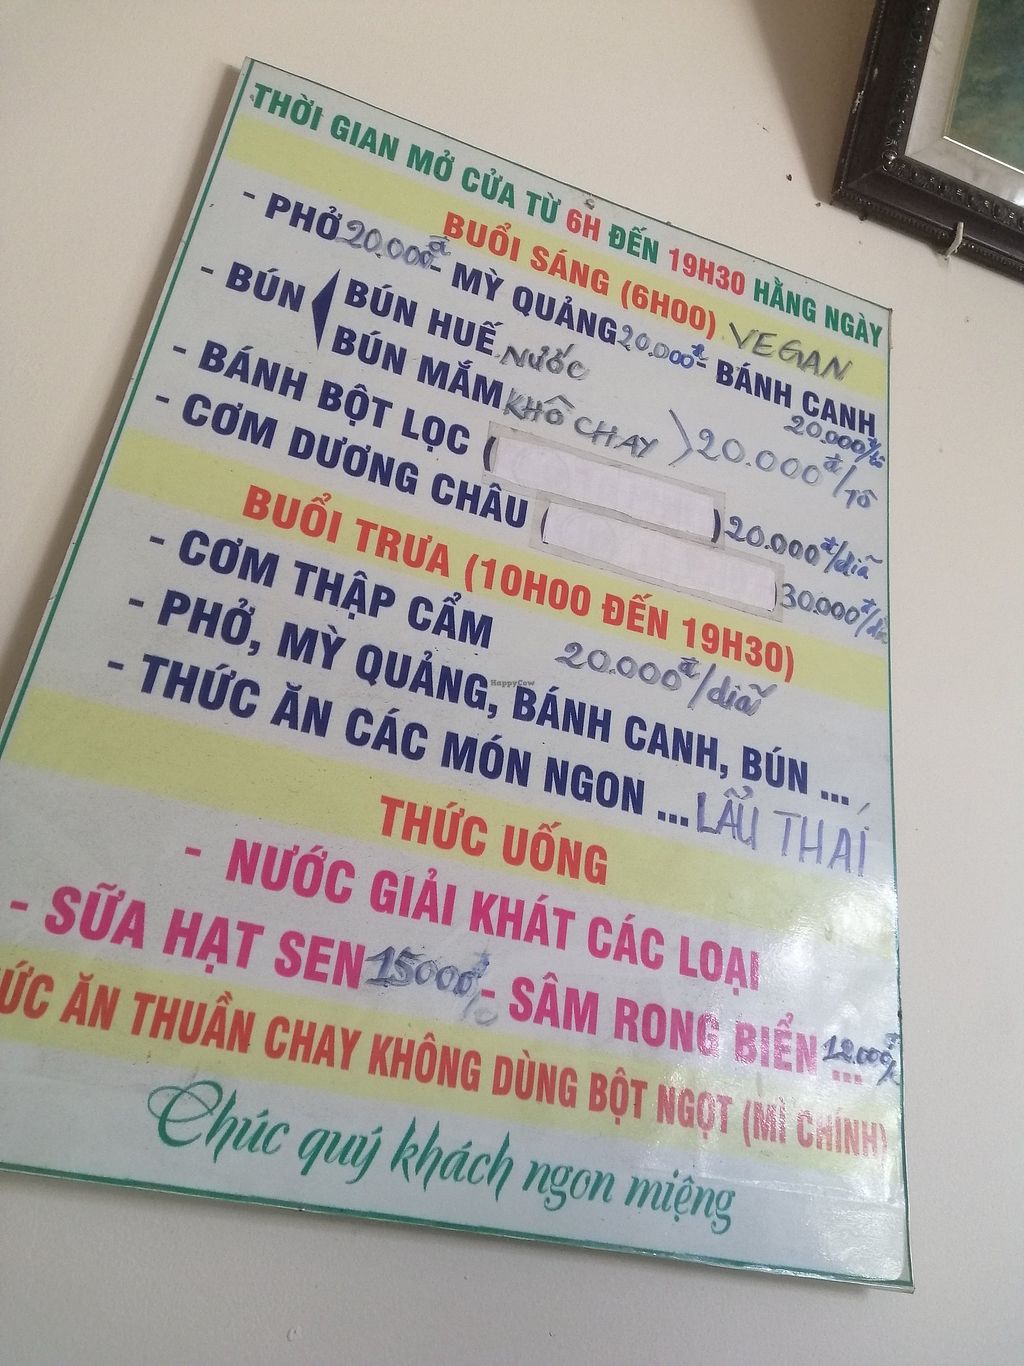 THỜI GIAN MỞ CỬA TỪ 6H ĐẾN 19H30 HẰNG NGÀY
BUỔI SÁNG (6H00) VEGAN
- PHỞ 20.000đ - MỲ QUẢNG 20.000đ - BÁNH CANH 20.000đ/tô
- BÚN BÚN HUẾ NƯỚC
BÚN MẮM KHÔ CHAY 20.000đ/TÔ
- BÁNH BỘT LỌC ( ) 20.000đ/dĩa
- CƠM DƯƠNG CHÂU ( 30.000đ/dĩa
BUỔI TRƯA (10H00 ĐẾN 19H30)
- CƠM THẬP CẨM 20.000đ/dĩa
- PHỞ, MỲ QUẢNG, BÁNH CANH, BÚN ...
- THỨC ĂN CÁC MÓN NGON ... LẨU THÁI
THỨC UỐNG
- NƯỚC GIẢI KHÁT CÁC LOẠI
- SỮA HẠT SEN 15000đ - SÂM RONG BIỂN ... 12.000đ
ỨC ĂN THUẦN CHAY KHÔNG DÙNG BỘT NGỌT (MÌ CHÍNH)
Chúc quý khách ngon miệng
HappyCow